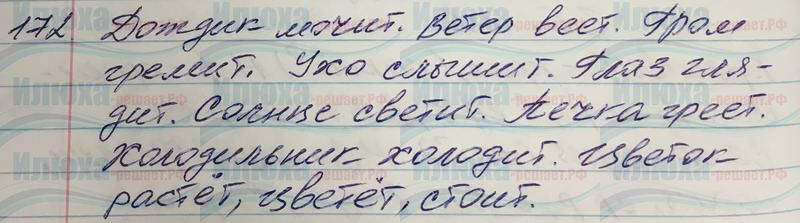 172 Дождик мочит. Ветер веет. Гром
гремит. Ухо слышит. Глаз гля-
дит. Солнце светит. Печка греет.
Холодильник холодит. Цветок
растёт, цветёт, стоит.